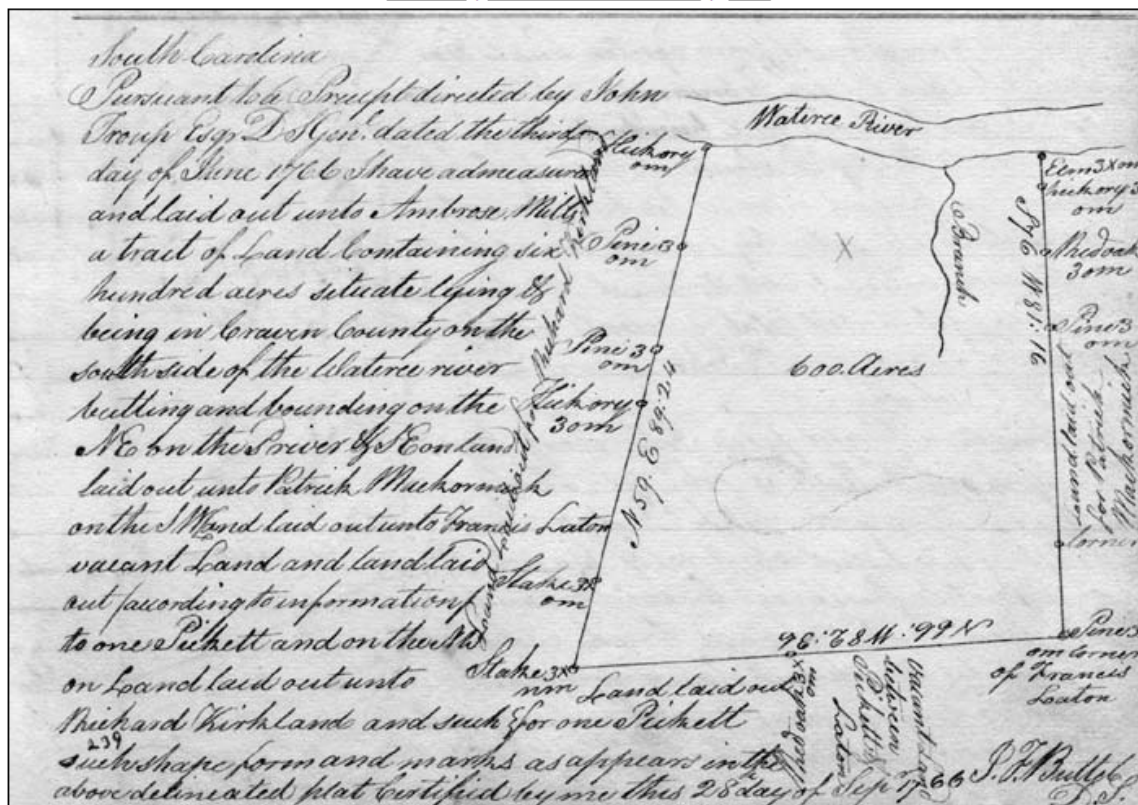 South Carolina
Pursuant to a Precept directed by John
Troup Esqr D S Genl dated the third
day of June 1766 I have admeasured
and laid out unto Ambrose Mills
a tract of Land Containing six
hundred acres situate lying &
being in Craven County on the
south side of the Wateree river
butting and bounding on the
NE on the river & SE on land
laid out unto Patrick Muckormick
on the SW land laid out unto Francis Laton
vacant Land and land laid
out (according to information)
to one Pickett and on the NW
on Land laid out unto
Richard Kirkland and such
such shape form and marks as appears in the
above delineated plat Certified by me this 28 day of Sep 1766
239
Wateree River
Hickory
om
Pine 3
om
Pine 3
om
Hickory
3 om
Stake 3x
om
Stake 3x
nm
Land laid out for Richard Kirkland
N 59. E 89.24
X
Branch
600. Acres
Elm 3x nm
hickory 3
om
Red oak
3 om
Pine 3
om
W 81:16
Land laid out
for Patrick
Muckormick
Corner
Pine 3
om Corner
of Francis
Laton
N 66. W 82.:36
Land laid out
for one Pickett
Red oak 3x
om
vacant Land
between
Pickett &
Laton